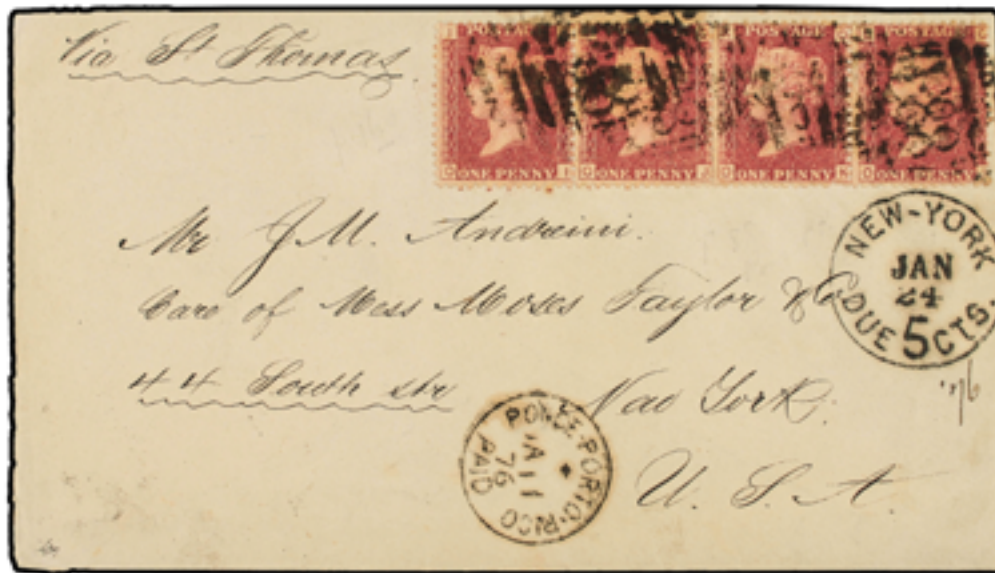 Via St Thomas
POSTAGE POSTAGE POSTAGE POSTAGE
ONE PENNY ONE PENNY ONE PENNY ONE PENNY
Mr J. M. Andreini.
Care of Mess Moses Taylor & Co
44 South str New York.
U. S. A
NEW-YORK
JAN
24
DUE 5 CTS.
PONCE·PORTO·RICO
JA 11
76
PAID